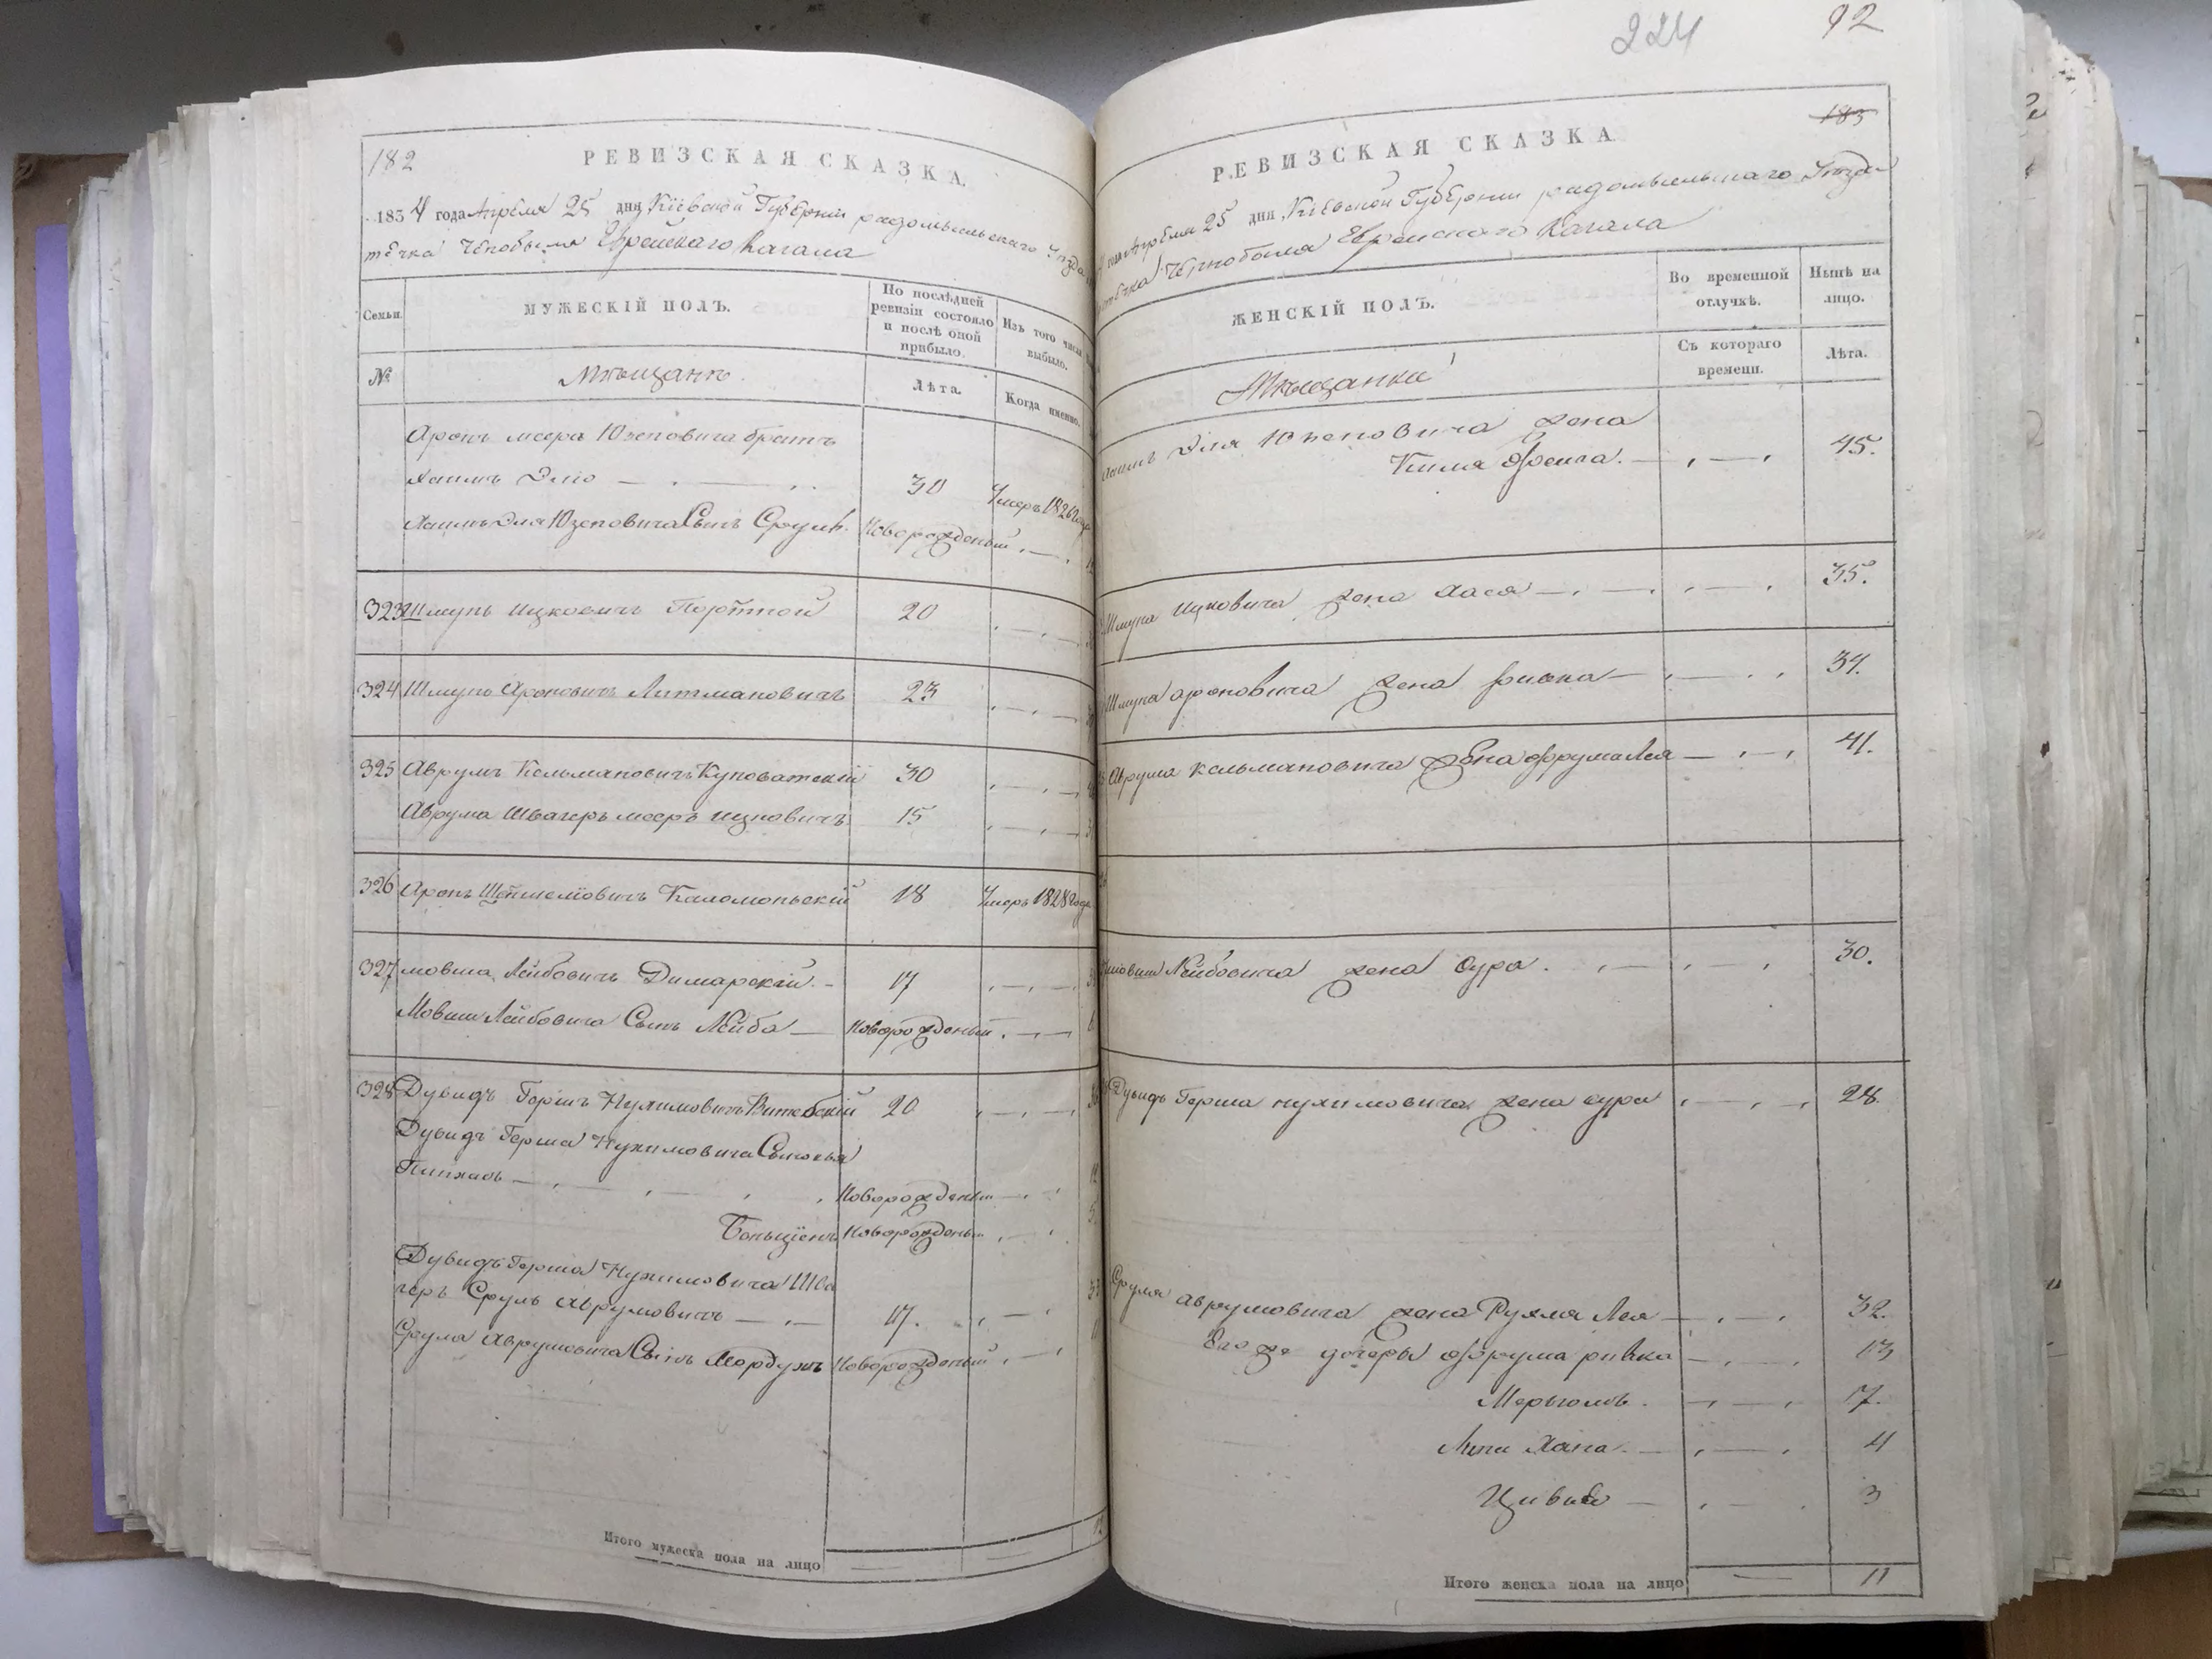 182
РЕВИЗСКАЯ СКАЗКА.
1834 года Апреля 25 дня Кіевской Губерніи радомысльскаго Уѣзда
мѣстечка Чернобыля Еврейскаго Кагала
Семьи.
МУЖЕСКІЙ ПОЛЪ.
По послѣдней ревизіи состояло и послѣ оной прибыло.
Изъ того числа выбыло.
№
Мѣщанѣ
Лѣта.
Когда именно.
Аронъ меера Юзеповича братъ
Хаимъ Элio 30 Умеръ 1826 года
Хаимъ Эля Юзеповича Сынъ Сруль. Новорожденый
323 Шмуль Ицковичъ Портной 20
324 Шмуль Ароновичъ Литмановичъ 23
325 Аврумъ Кельмановичъ Куповатскій 30
Аврума Швагеръ мееръ ицковичъ 15
326 Аронъ 18 Умеръ 1828 года
327 мовша Лейбовичъ Димарскій. 17
Мовши Лейбовича Сынъ Лейба Новорожденый
328 Дувидъ Гершъ Нухимовичъ Витебскій 20
Дувидъ Герша Нухимовича Сыновья
Пинхасъ Новорожденый
Бенъціонъ Новорожденый
Дувидъ Герша Нухимовича Шва
геръ Сруль Аврумовичъ 17.
Сруля Аврумовича Сынъ Мордухъ Новорожденый
Итого мужеска пола на лицо
224
92
183
РЕВИЗСКАЯ СКАЗКА
года Апреля 25 дня Кіевской Губерніи радомысльскаго Уѣзда
Чернобыля Еврейского Кагала
ЖЕНСКІЙ ПОЛЪ.
Во временной отлучкѣ.
Нынѣ на лицо.
Мѣщанки
Съ котораго времени.
Лѣта.
Хаимъ Эля Юзеповича жена
Фейга. 45.
Шмуля Ицковича жена Хася 35.
Шмуля ароновича жена 34.
Аврума Кельмановича жена Фрума Лея 41.
Мовши Лейбовича жена Сура. 30.
Дувидъ Герша нухимовича жена сура 28.
Сруля аврумовича жена Рухля Лея 32.
Его же дочеры Фрума ривка 13
17.
Хана. 4
Цивія 3
Итого женска пола на лицо 11